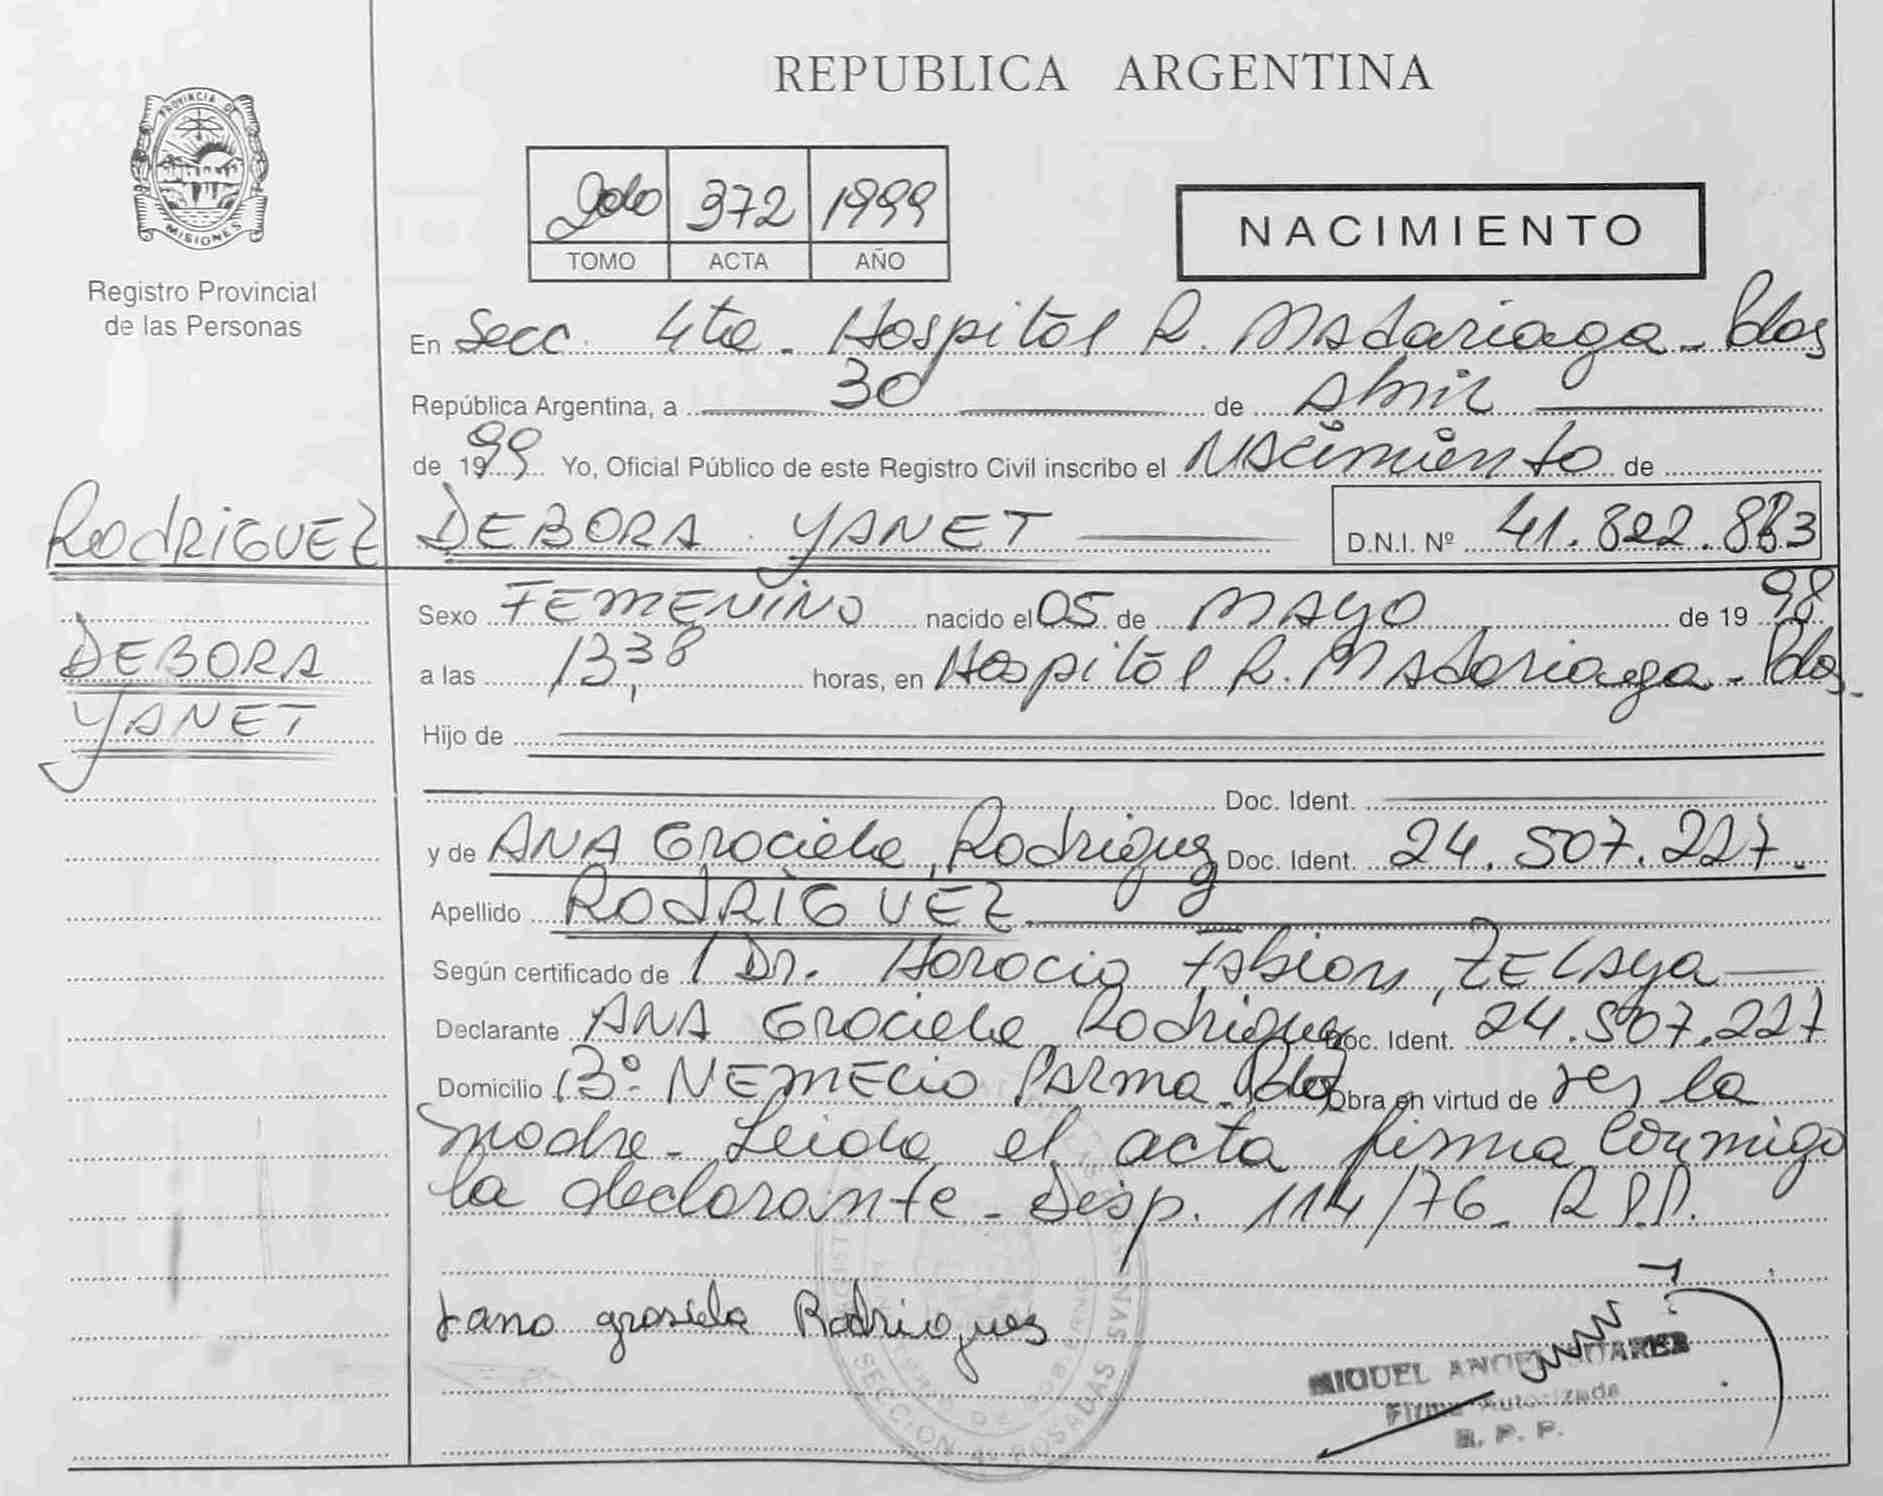 REPUBLICA ARGENTINA
PROVINCIA DE
MISIONES
Registro Provincial
de las Personas
2do 372 1999
TOMO ACTA AÑO
NACIMIENTO
En Secc. 4ta - Hospital R. Madariaga - Pdas
República Argentina, a 30 de Abril
de 1999 Yo, Oficial Público de este Registro Civil inscribo el Nacimiento de
RODRIGUEZ DEBORA YANET D.N.I. Nº 41.822.883
DEBORA
YANET
Sexo FEMENINO nacido el 05 de MAYO de 1998
a las 13,38 horas, en Hospital R. Madariaga - Pdas.
Hijo de
Doc. Ident.
y de ANA Graciela, Rodriguez Doc. Ident. 24.507.227.
Apellido RODRIGUEZ
Según certificado de Dr. Horacio Fabian, ZELAYA
Declarante ANA Graciela Rodriguez Doc. Ident. 24.507.227
Domicilio Bº NEMECIO PARMA - Pdas Obra en virtud de ser la
madre - Leida el acta firma conmigo
la declarante - Disp. 114/76 - R.P.P.
grasiela Rodrigues
MIGUEL ANGEL SUAREZ
Firma Autorizada
R. P. P.
SECCION 4º POSADAS